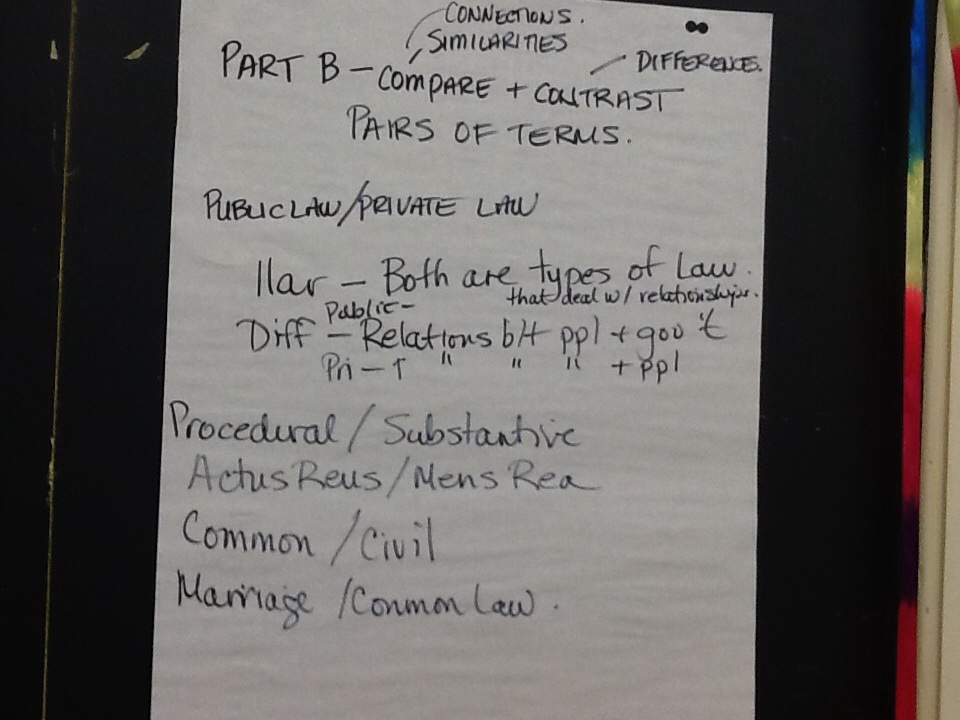 CONNECTIONS.
SIMILARITIES
DIFFERENCE.
PART B - COMPARE + CONTRAST
PAIRS OF TERMS.
PUBLIC LAW/PRIVATE LAW
llar - Both are types of Law.
that deal w/ relationships.
Public -
Diff - Relations b/t ppl + gov't
Pri - " " " + ppl
Procedural / Substantive
Actus Reus / Mens Rea
Common / Civil
Marriage / Common Law.